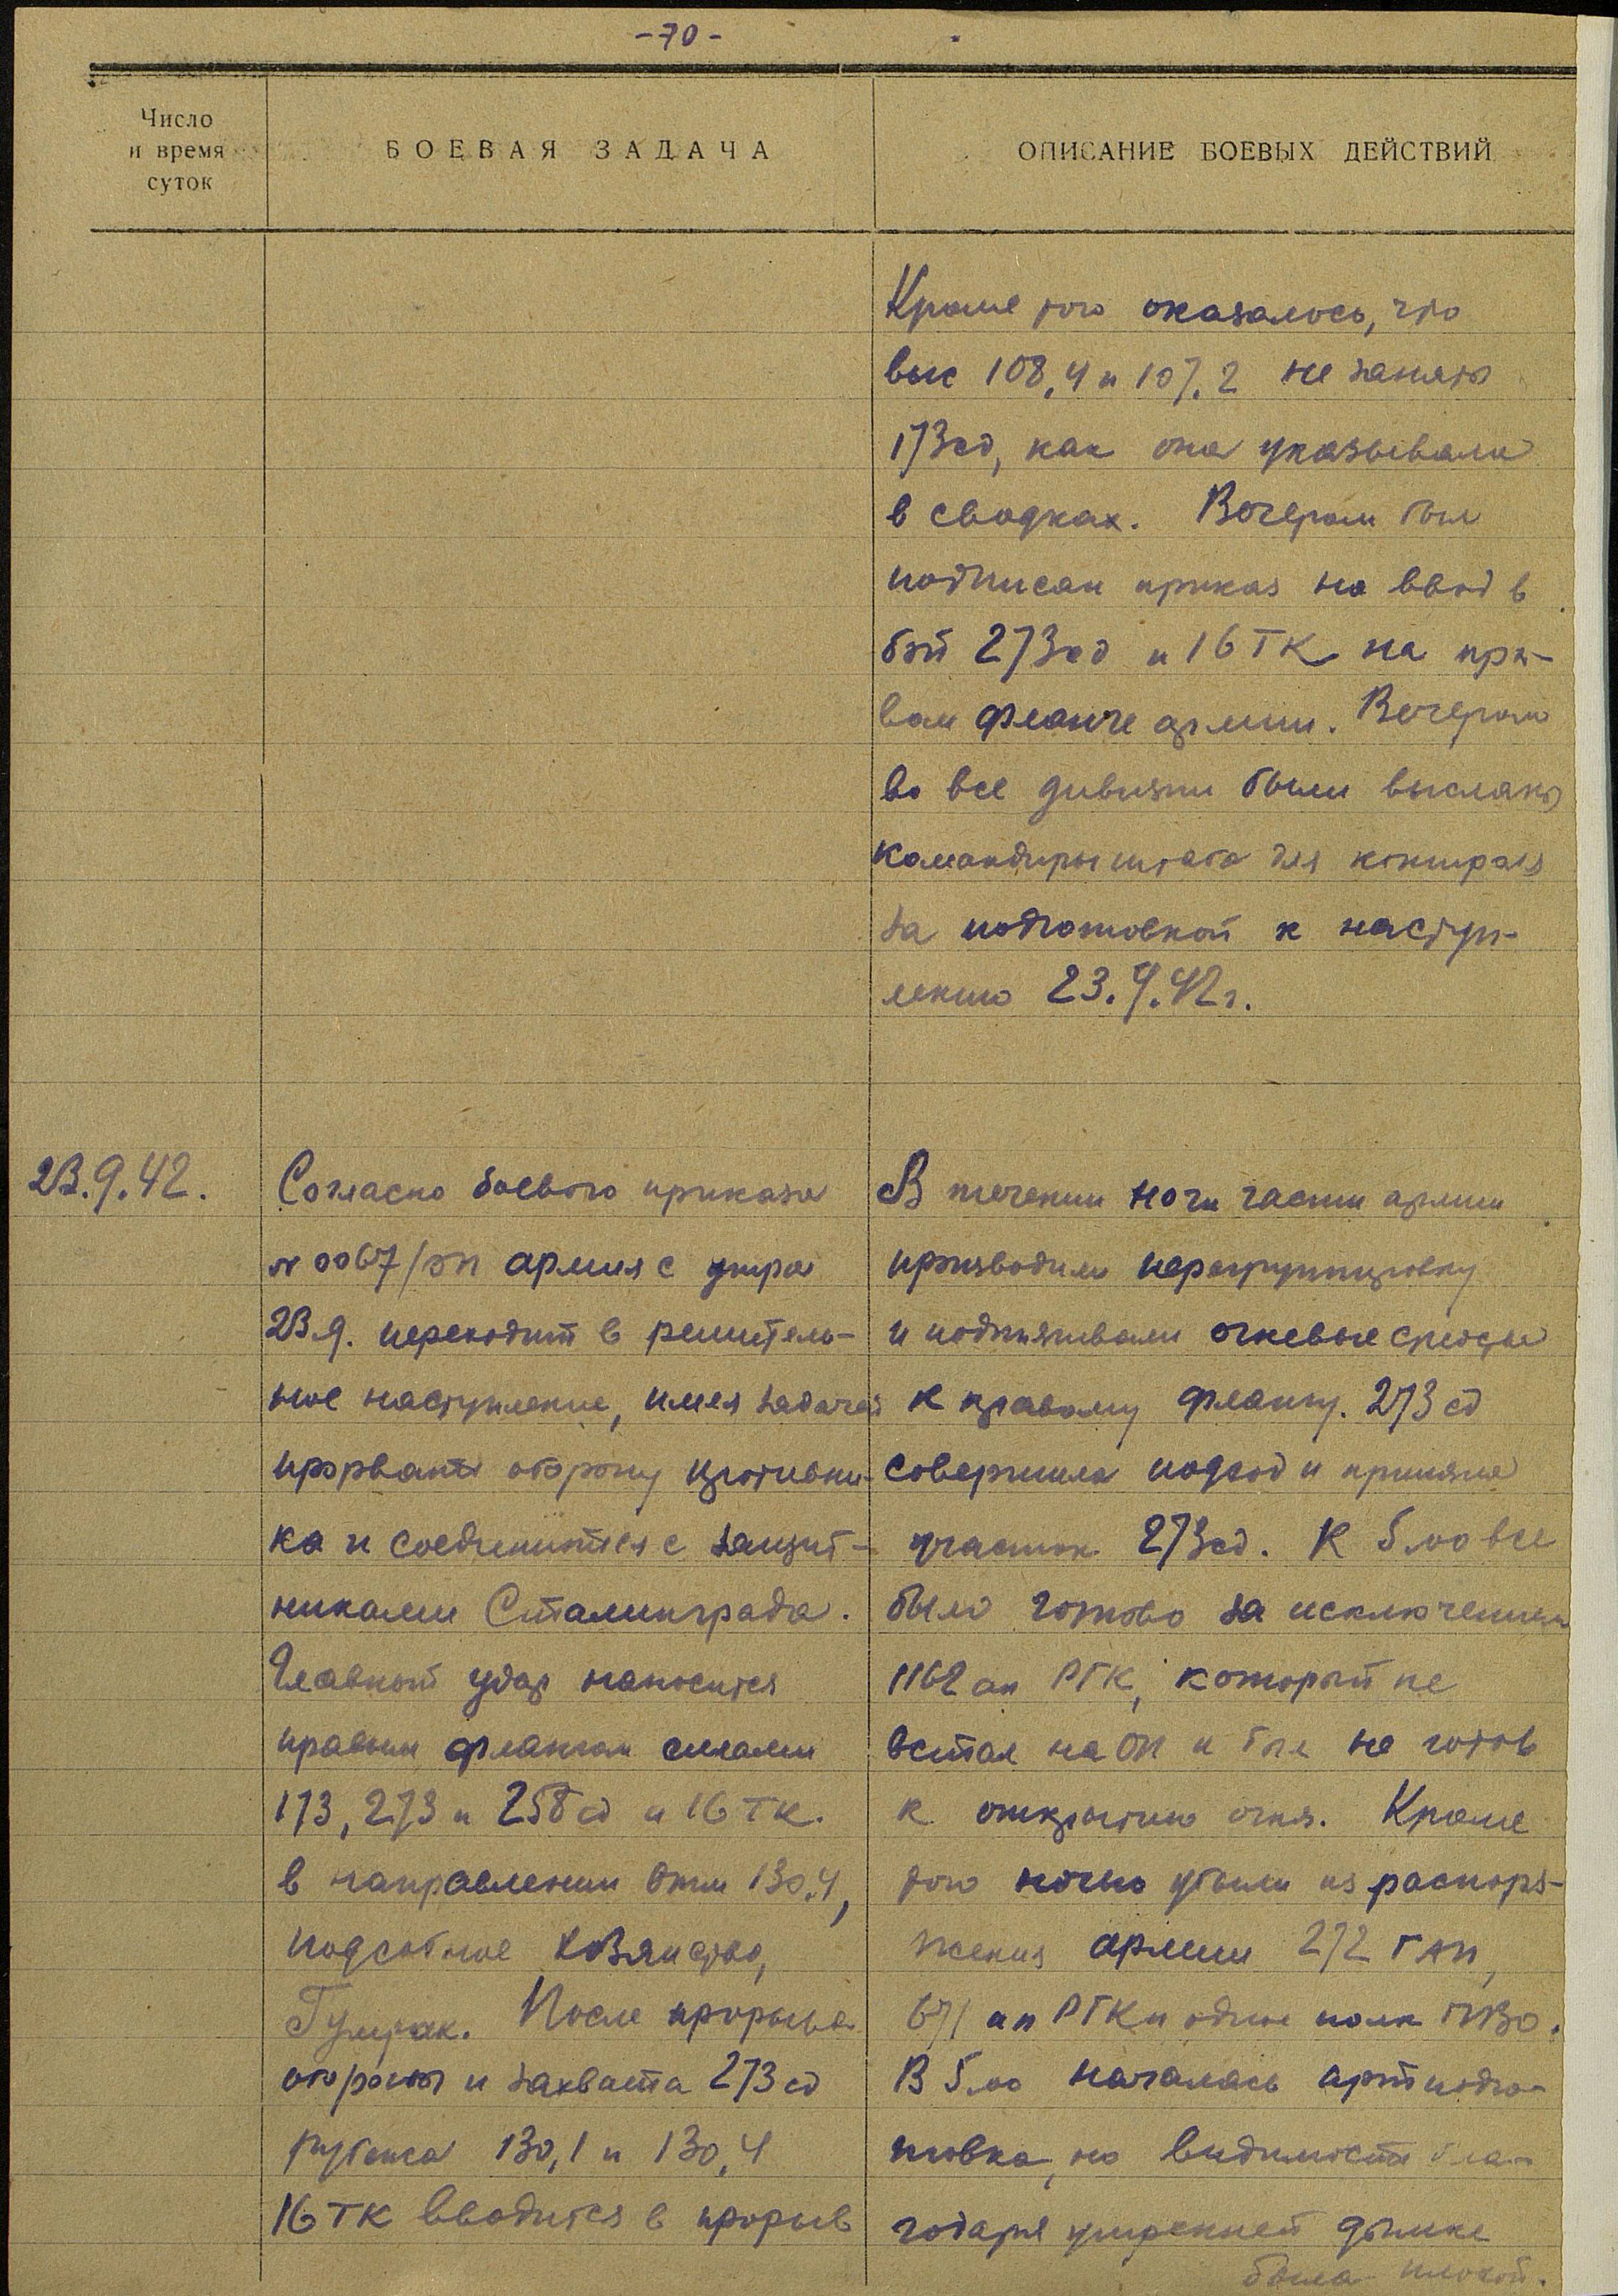 -70-
Число
и время
суток
БОЕВАЯ ЗАДАЧА
ОПИСАНИЕ БОЕВЫХ ДЕЙСТВИЙ
Кроме того оказалось, что
выс 108,4 и 107,2 не заняты
173сд, как она указывала
в сводках. Вечером был
подписан приказ на ввод в
бой 273сд и 16 ТК на пра-
вом фланге армии. Вечером
во все дивизии были высланы
командиры штаба для контроля
за подготовкой к наступ-
лению 23.9.42г.
23.9.42.
Согласно боевого приказа
№ 0067/оп армия с утра
23.9. переходит в решитель-
ное наступление, имея задачей
прорвать оборону противни-
ка и соединиться с защит-
никами Сталинграда.
Главный удар наносится
правым флангом силами
173, 273 и 258 сд и 16 тк.
в направлении отм 130,4,
подсобное хозяйство,
Гумрак. После прорыва
обороны и захвата 273 сд
рубежа 130,1 и 130,4
16 ТК вводится в прорыв
В течении ночи части армии
производили перегруппировку
и подтягивали огневые средства
к правому флангу. 273 сд
совершила подход и приняла
участок 273сд. К 5.00 все
было готово за исключением
1162 ап РГК, который не
встал на ОП и был не готов
к открытию огня. Кроме
того ночью убыли из распоря-
жения армии 272 ГАП,
671 ап РГК и один полк ПВО.
В 5.00 началась артподго-
товка, но видимость бла-
годаря утренней дымке
была плохой.